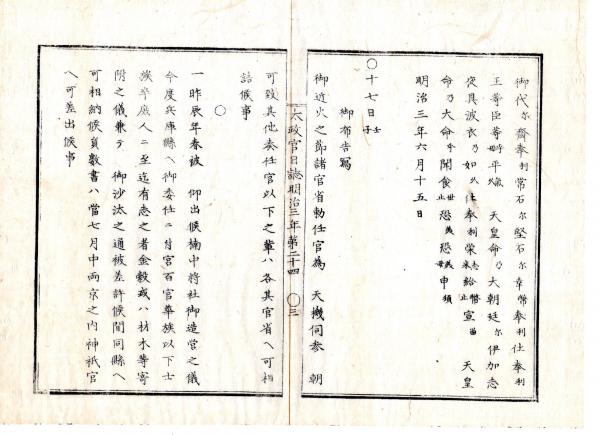 御代尓齋奉利常石尓堅石尓幸幣奉利仕奉利
王等臣等毋平久 天皇命乃大朝廷尓伊加志
夜具波衣乃如久仕奉利榮志米給幣止宣留 天皇
命乃大命乎聞食世止恐美恐美毋申須
明治三年六月十五日
〇十七日壬子
御布告寫
御近火之節諸官省勅任官為 天機伺参 朝
可致其他奏任官以下之輩ハ各其官省ヘ可相
詰候事
太政官日誌明治三年第二十四 〇三
〇
一昨辰年春被 仰出候楠中將社御造営之儀
今度兵庫縣ヘ御委任ニ付宮百官華族以下士
族卒庶人ニ至迄有志之者金穀或ハ材木等寄
附之儀兼テ御沙汰之通被差許候間同縣ヘ
可相納候員數書ハ當七月中両京之内神祇官
ヘ可差出候事